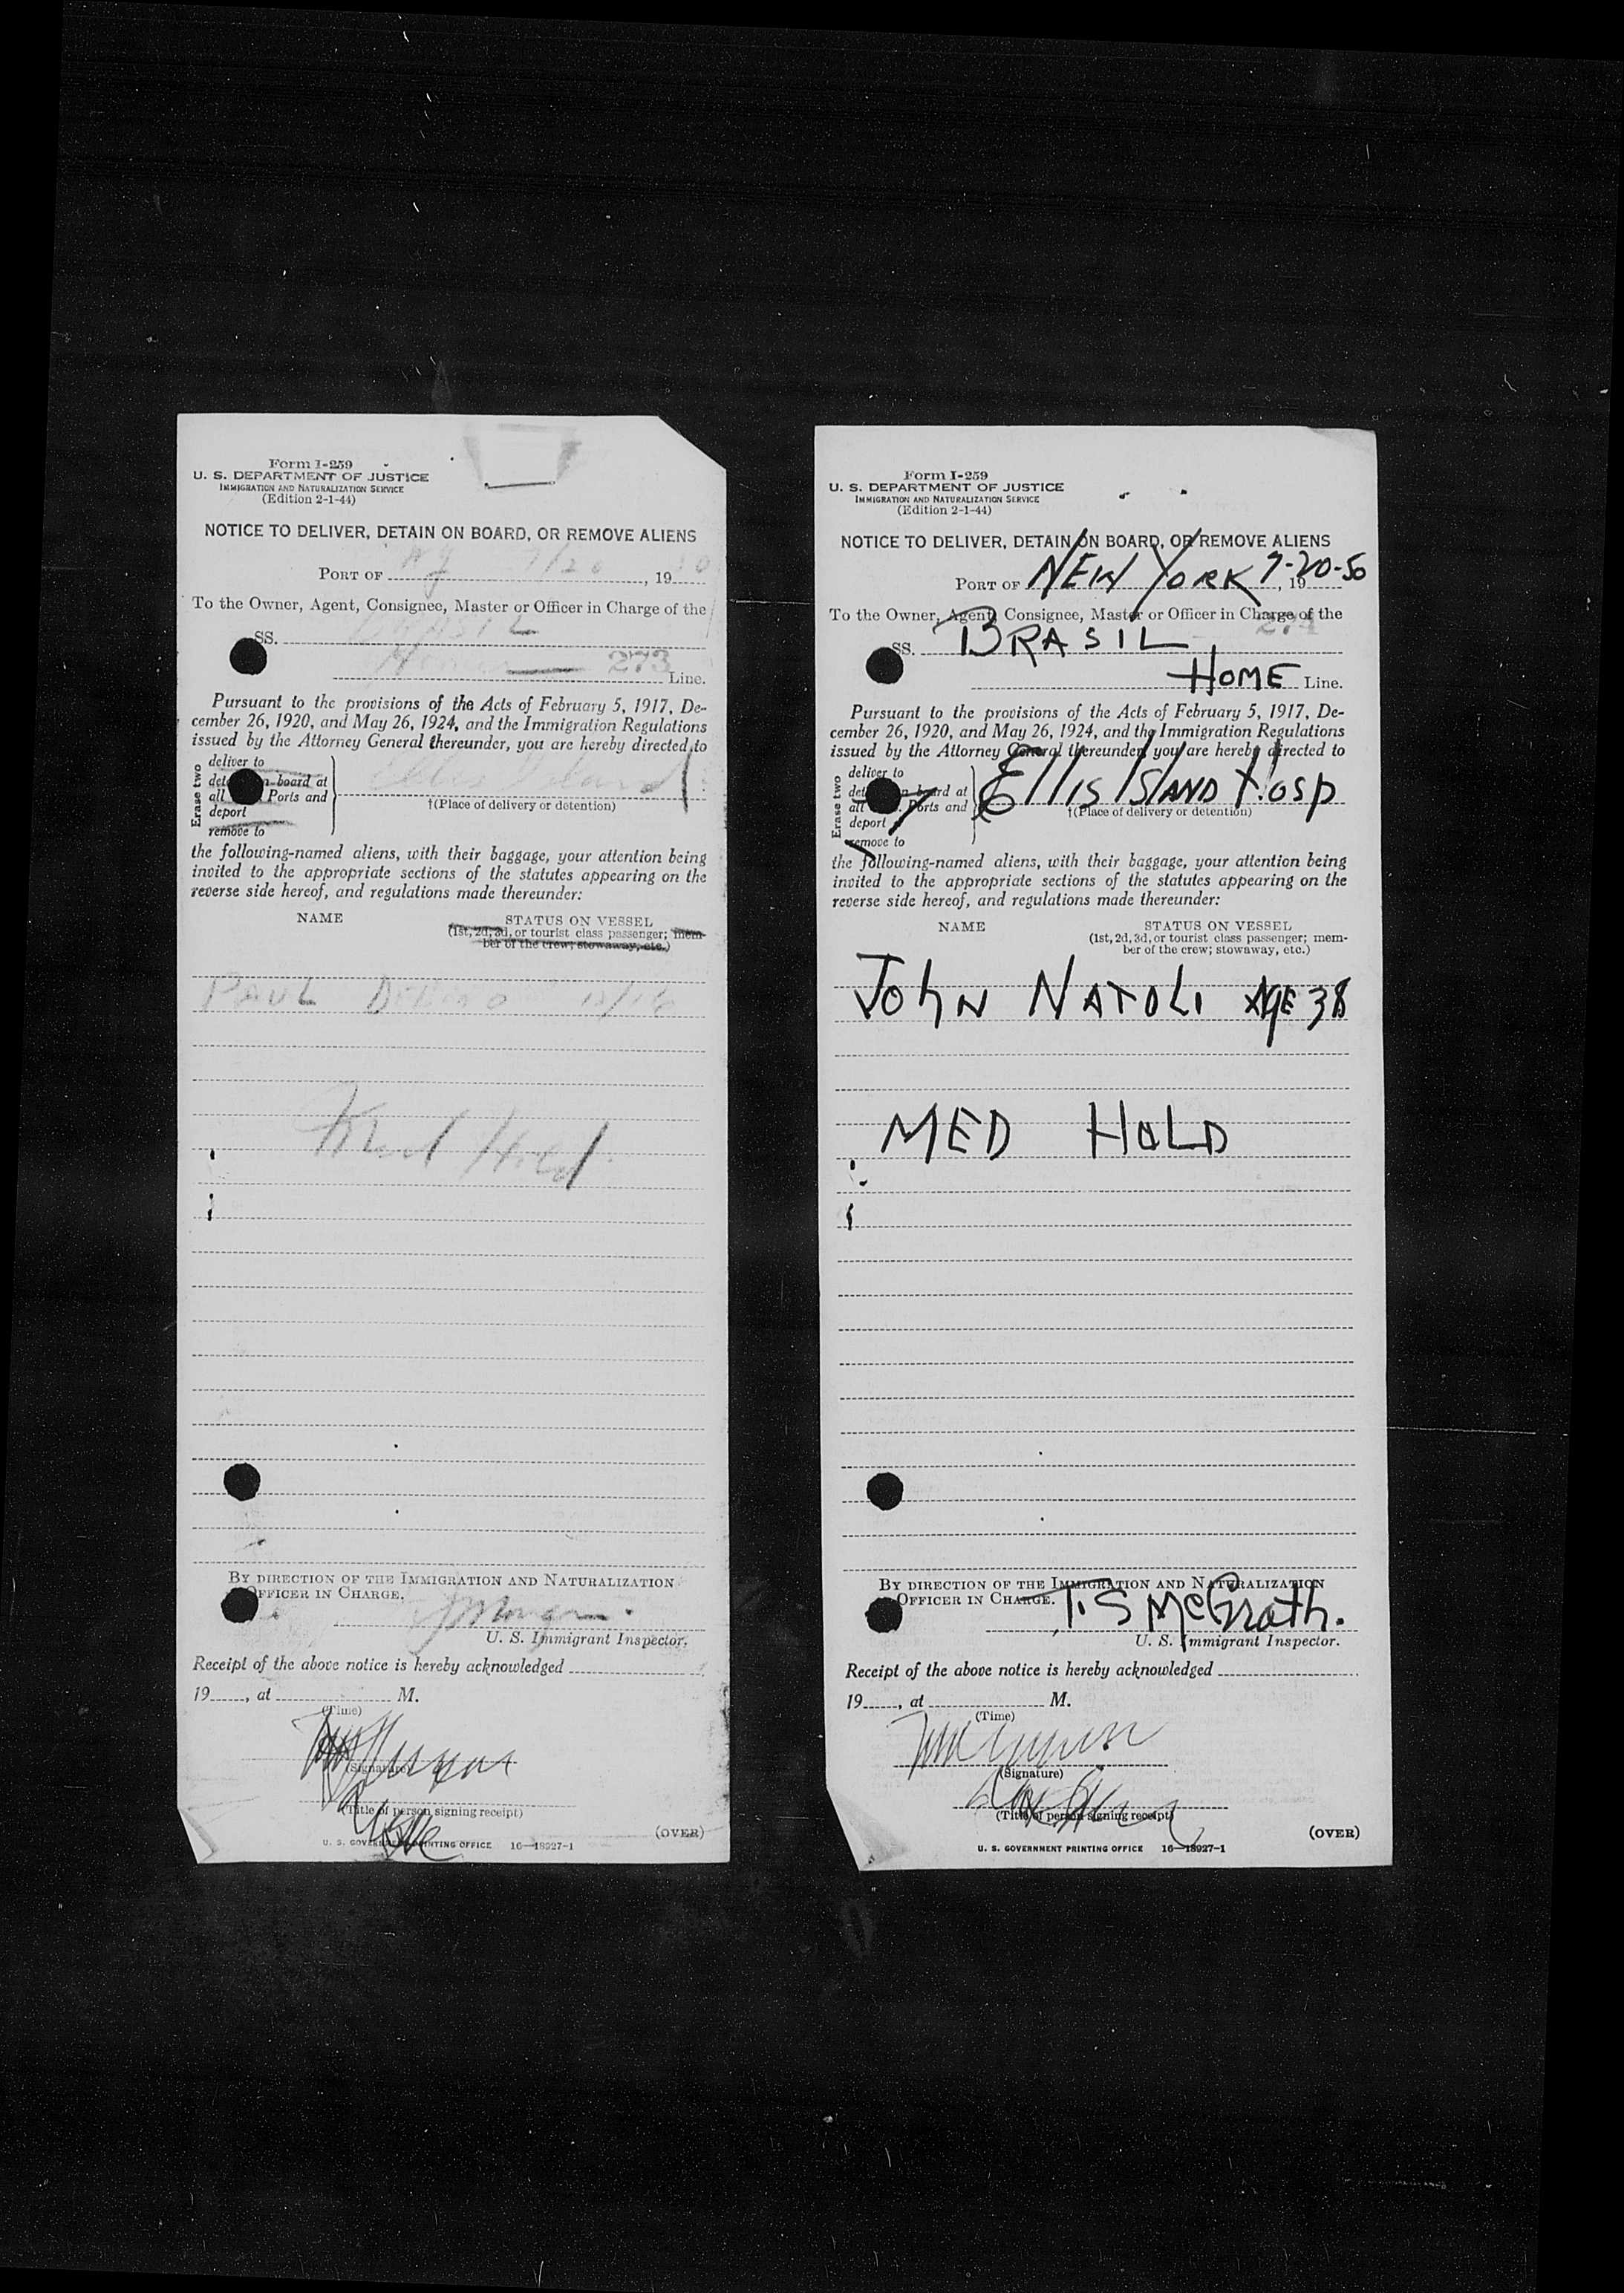 Form I-259
U. S. DEPARTMENT OF JUSTICE
IMMIGRATION AND NATURALIZATION SERVICE
(Edition 2-1-44)
NOTICE TO DELIVER, DETAIN ON BOARD, OR REMOVE ALIENS
PORT OF NY 7/20, 1950
To the Owner, Agent, Consignee, Master or Officer in Charge of the
SS. BRASIL
Home 273 Line.
Pursuant to the provisions of the Acts of February 5, 1917, De-
cember 26, 1920, and May 26, 1924, and the Immigration Regulations
issued by the Attorney General thereunder, you are hereby directed to
Erase two
deliver to
board at
all Ports and
deport
remove to
Ellis Island
†(Place of delivery or detention)
the following-named aliens, with their baggage, your attention being
invited to the appropriate sections of the statutes appearing on the
reverse side hereof, and regulations made thereunder:
NAME STATUS ON VESSEL
(1st, 2d, 3d, or tourist class passenger; mem-
ber of the crew; stowaway, etc.)
PAUL
Med Hold
BY DIRECTION OF THE IMMIGRATION AND NATURALIZATION
OFFICER IN CHARGE.
U. S. Immigrant Inspector.
Receipt of the above notice is hereby acknowledged
19, at M.
(Time)
(Signature)
(Title of person signing receipt)
U. S. GOVERNMENT PRINTING OFFICE 16—18927-1
(OVER)
Form I-259
U. S. DEPARTMENT OF JUSTICE
IMMIGRATION AND NATURALIZATION SERVICE
(Edition 2-1-44)
NOTICE TO DELIVER, DETAIN ON BOARD, OR REMOVE ALIENS
PORT OF NEW YORK 7-20-50, 19
To the Owner, Agent, Consignee, Master or Officer in Charge of the
274
SS. BRASIL
HOME Line.
Pursuant to the provisions of the Acts of February 5, 1917, De-
cember 26, 1920, and May 26, 1924, and the Immigration Regulations
issued by the Attorney General thereunder, you are hereby directed to
Erase two
deliver to
board at
all Ports and
deport
remove to
Ellis Island Hosp
†(Place of delivery or detention)
the following-named aliens, with their baggage, your attention being
invited to the appropriate sections of the statutes appearing on the
reverse side hereof, and regulations made thereunder:
NAME STATUS ON VESSEL
(1st, 2d, 3d, or tourist class passenger; mem-
ber of the crew; stowaway, etc.)
JOHN NATOLI AGE 38
MED HOLD
BY DIRECTION OF THE IMMIGRATION AND NATURALIZATION
OFFICER IN CHARGE.
T. S McGrath.
U. S. Immigrant Inspector.
Receipt of the above notice is hereby acknowledged
19, at M.
(Time)
(Signature)
(Title of person signing receipt)
U. S. GOVERNMENT PRINTING OFFICE 16—18927-1
(OVER)